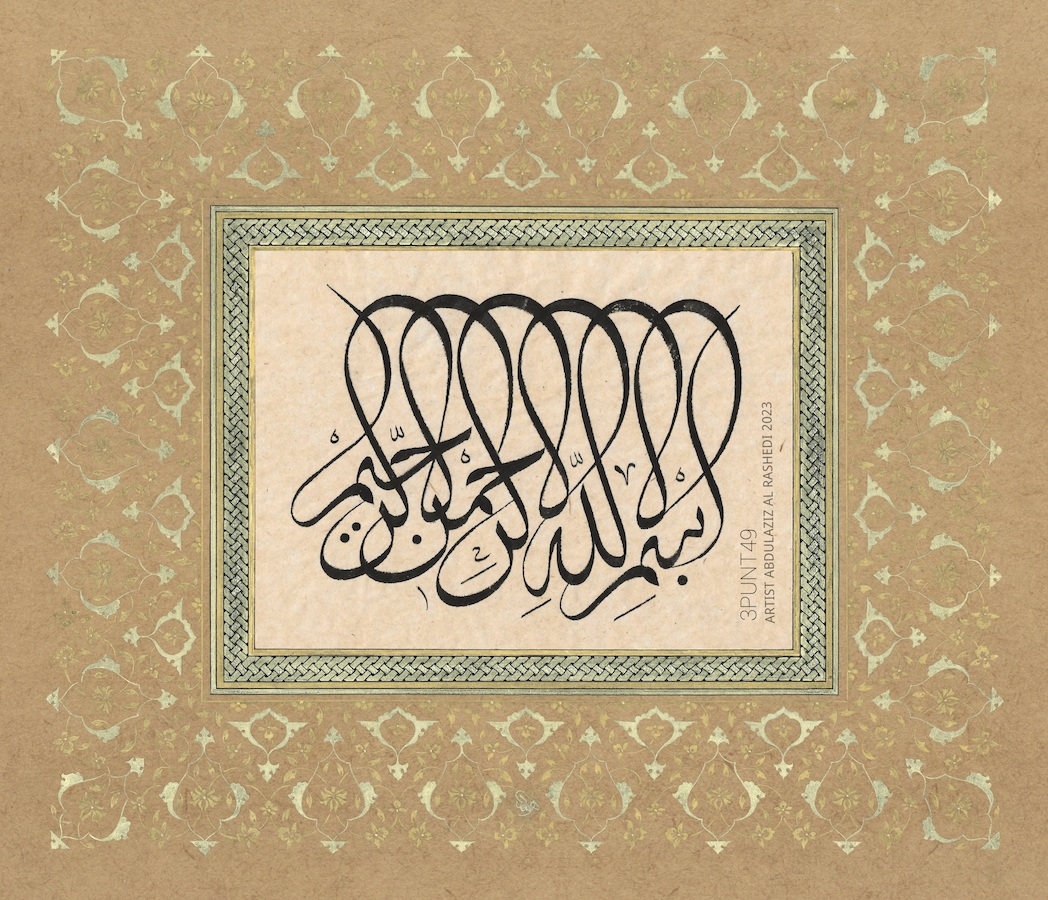 بسم الله الرحمن الرحيم
3PUNT49
ARTIST ABDULAZIZ AL RASHEDI 2023